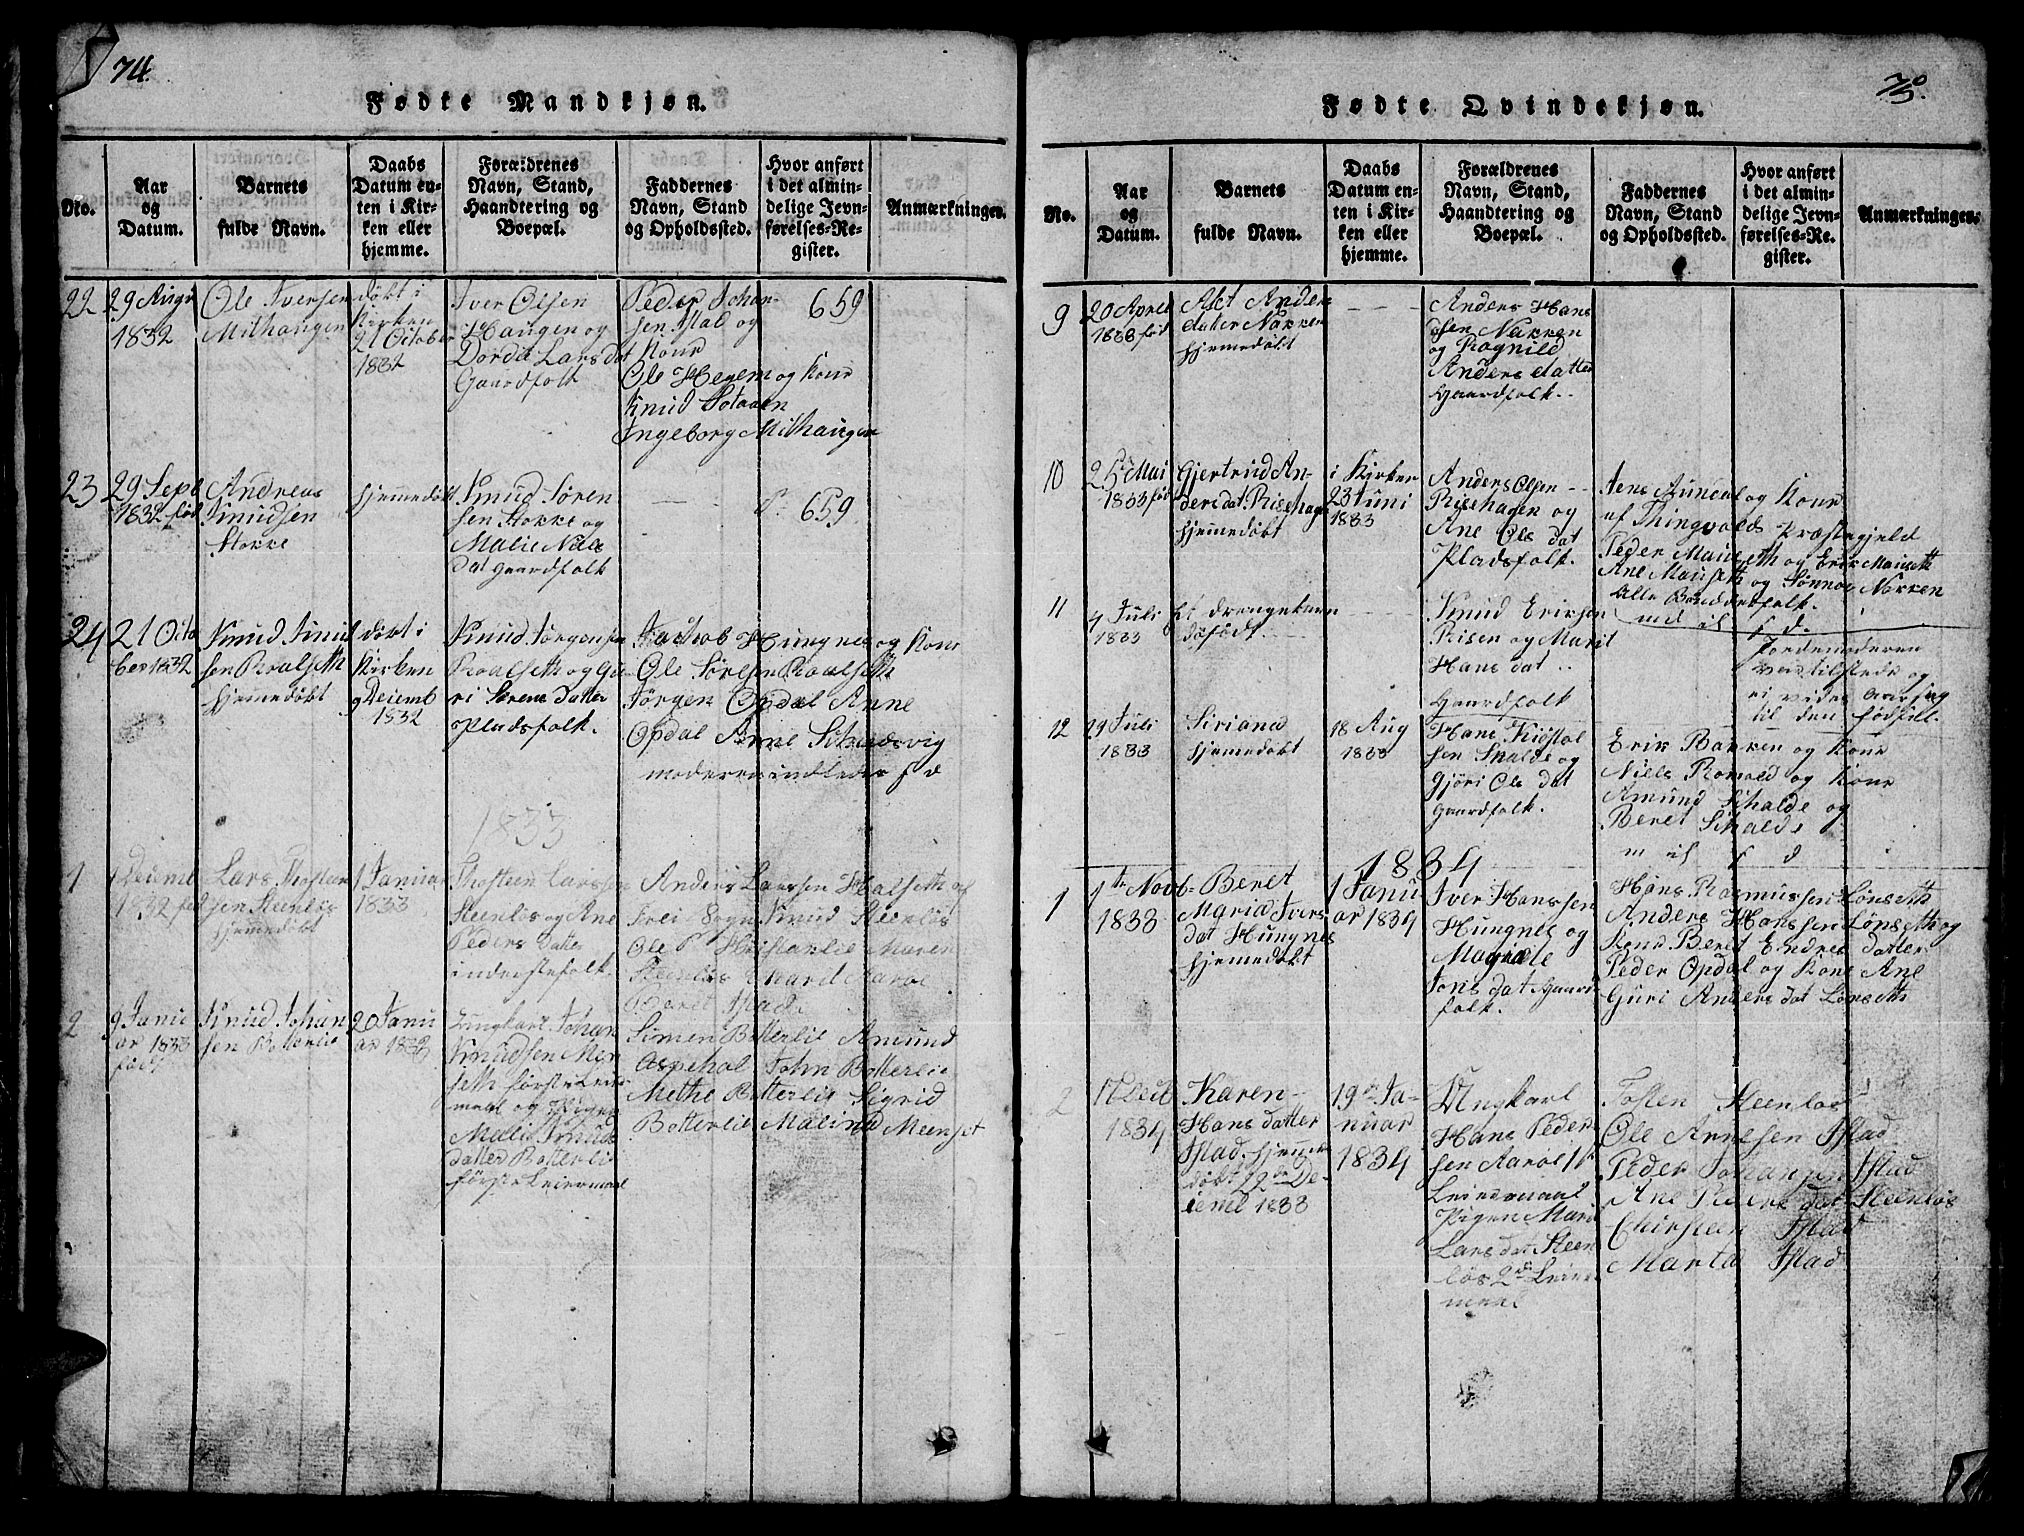 74.
Fødte Mandkjøn.
No.
Aar
og
Datum.
Barnets
fulde Navn.
Daabs
Datum en-
ten i Kir-
ken eller
hjemme.
Forældrenes
Navn, Stand,
Haandtering og
Boepæl.
Faddernes
Navn, Stand
og Opholdssted.
Hvor anført
i det almin-
delige Jevn-
førelses-Re-
gister.
Anmærkninger.
22
29 Augu
1832
Ole Iversen
Milhaugen
døbt i
Kirken
21 October
1832
Iver Olsen
Haugen og
Dordie Lars dat
Gaardfolk
Peder Johan-
sen Istad og
Kone
Ole Hegem og Kone
Knud Solaaen
Ingeborg Milhaugen
659
23
29 Sept
1832 fød
Andreas
Knudsen
Stokke
hjemmedøbt
Knud Søren
sen Stokke og
Malie Niels
dat gaardfolk
659
24
21 Octo
ber 1832
Knud Knud
sen Roalseth
hjemmedøbt
døbt i
Kirken
9 Decemb
1832
Knud Jørgensen
Roalseth og Gu
ri Sørens datter
Pladsfolk.
Jackob Hungnes og Kone
Ole Sørensen Roalseth
Jørgen Opdal Anne
Opdal Anne Schudsvig
moderen indledes s d
1833
1
1 Decemb
1832 fød
Lars Thostan
sen Steenløs
hjemmedøbt
1 Januar
1833
Thosteen Larssen
Steenløs og Ane
Peders datter
inderstefolk
Anders Larssen Halseth af
Frei Sogn Knud Steenløs
Ole P Christanlie Maren
Steenløs Marit Aarøe
Beret Istad.
2
9 Janu
ar 1833
født
Knud Johan
sen Botterlie
20 Janu
ar 1833
Ungkarl Johan
Knudsen Mer
seth første Leier
maal og Pigen
Malie Knuds
datter Botterlie
første Leiermaal
Simen Botterlie Amund
Aspehol John Botterlie
Methe Botterlie Sigrid
Botterlie Malind Meenset
75.
Fødte Qvindekjøn.
No.
Aar
og
Datum.
Barnets
fulde Navn.
Daabs
Datum en-
ten i Kir-
ken eller
hjemme.
Forældrenes
Navn, Stand,
Haandtering og
Boepæl.
Faddernes
Navn, Stand
og Opholdssted.
Hvor anført
i det almin-
delige Jevn-
førelses-Re-
gister.
Anmærkninger.
9
20 April
1833 fød
Anders
datter Nakken
hjemmedøbt
Anders Hans
sen Nakken
og Ragnild
Anders datter
Gaardfolk.
10
25 Mai
1833 fød
Gjertrud An-
ders dat Risehagen
hjemmedøbt
i Kirken
23 Juni
1833
Anders Olsen
Risehagen og
Ane Ole dat
Pladsfolk.
Jens Aunedal og Kone
af Thingvolds Præstegjeld
Peder Mauseth og Erik Mauseth
Ane Mauseth og Sønnoe Nakken
Alle Bondefolk.
11
4 Juli
1833
Et drengebarn
døfødt
Knud Eriksen
Risen og Marit
Hans dat
Gaardfolk
Jordemoderen
var tilstede og
ei vides aarsag
til den fødsel.
12
29 Juli
1833
Siriana
hjemmedøbt
18 Aug
1833
Hans Kistol
sen Skalde og
Gjøri Ole dat
Gaardfolk.
Erik Bakken og Kone
Niels Romold og Kone
Amund Schalde og
Beret Schalde
m il s d
1834
1
1te Novb
1833
Beret
Maria Ivers
dat Hungnes
hjemmedøbt
1 Janu
ar 1834
Iver Hanssen
Hungnes og
Magrete
Jons dat Gaard
folk.
Hans Rasmussen Lønseth
Anders Hanssen Lønseth og
Kone Beret Endres datter
Peder Opdal og Kone Ane
Guri Anders dat Lønseth
2
17 Decb
1834
Karen
Hans datter
Istad. hjemme
døbt 22de De-
cemb 1833
19de Ja-
nuar
1834
Ungkarl
Hans Peder
sen Aarøe 1te
Leiermaal
Pigen Marit
Lars dat Steen
løs 2det Leier-
maal
Tosten Steenløs
Ole Arnesen Istad
Peder Johansen Istad
Ane Peders dat Steenløs
Chirsten Istad
Marta Istad